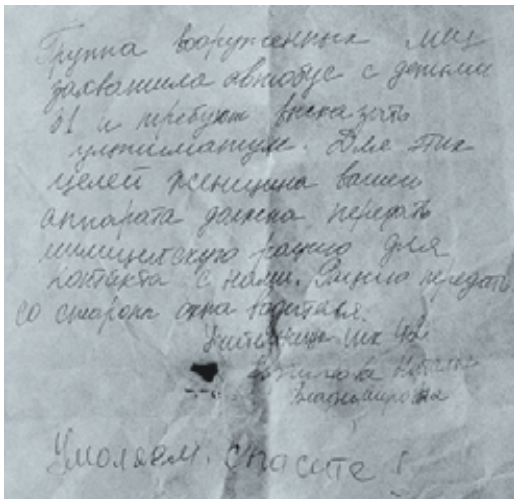 Группа вооруженных лиц
захватила автобус с детьми
61 и требуют высказать
ультиматум. Для этих
целей женщина вашего
аппарата должна передать
милицейскую рацию для
контакта с нами. Рацию передать
со стороны окна водителя.
Учительница шк 42
Наталья
Владимировна
Умоляем. спасите!